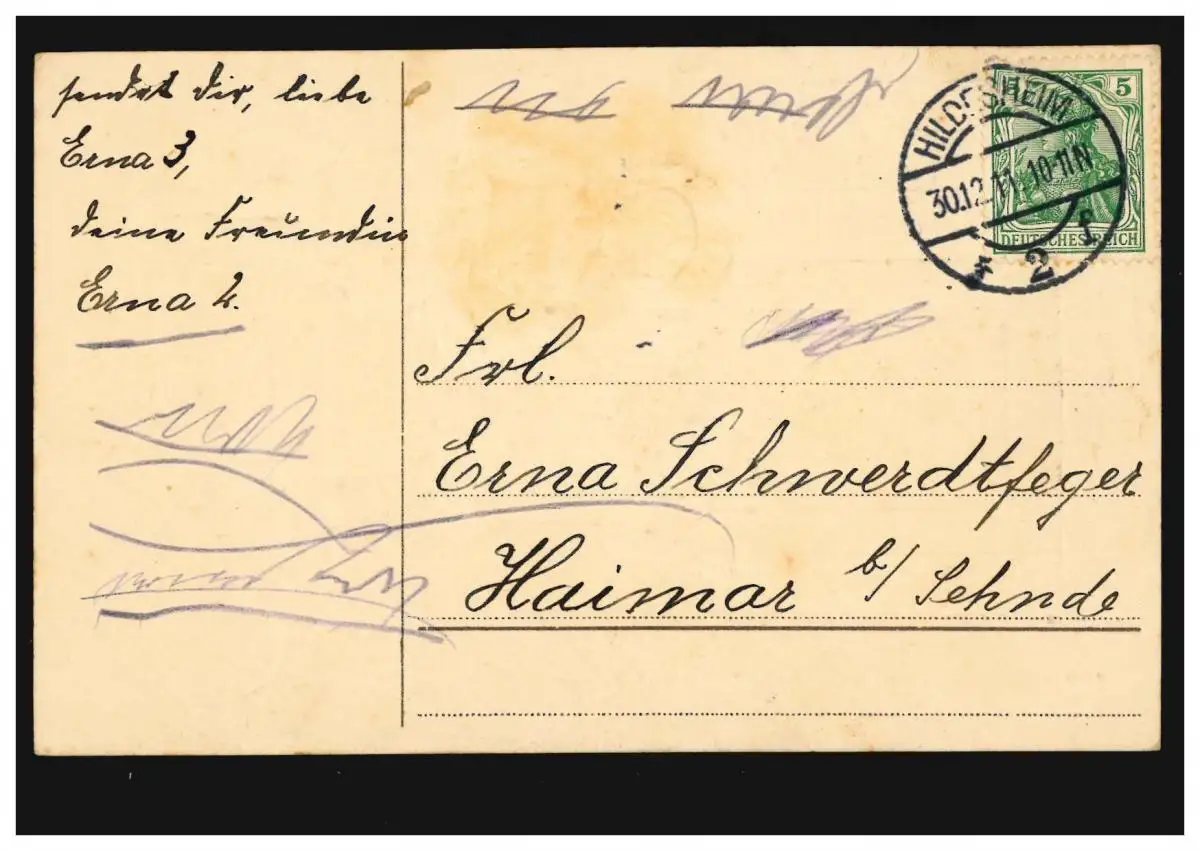 sendet dir, liebe
Erna 3,
deine Freundin
Erna 2.
HILDESHEIM
30.12.11. 10-11N
* 2 f
5
DEUTSCHES REICH
Frl.
Erna Schwerdtfeger
Haimar b/ Sehnde